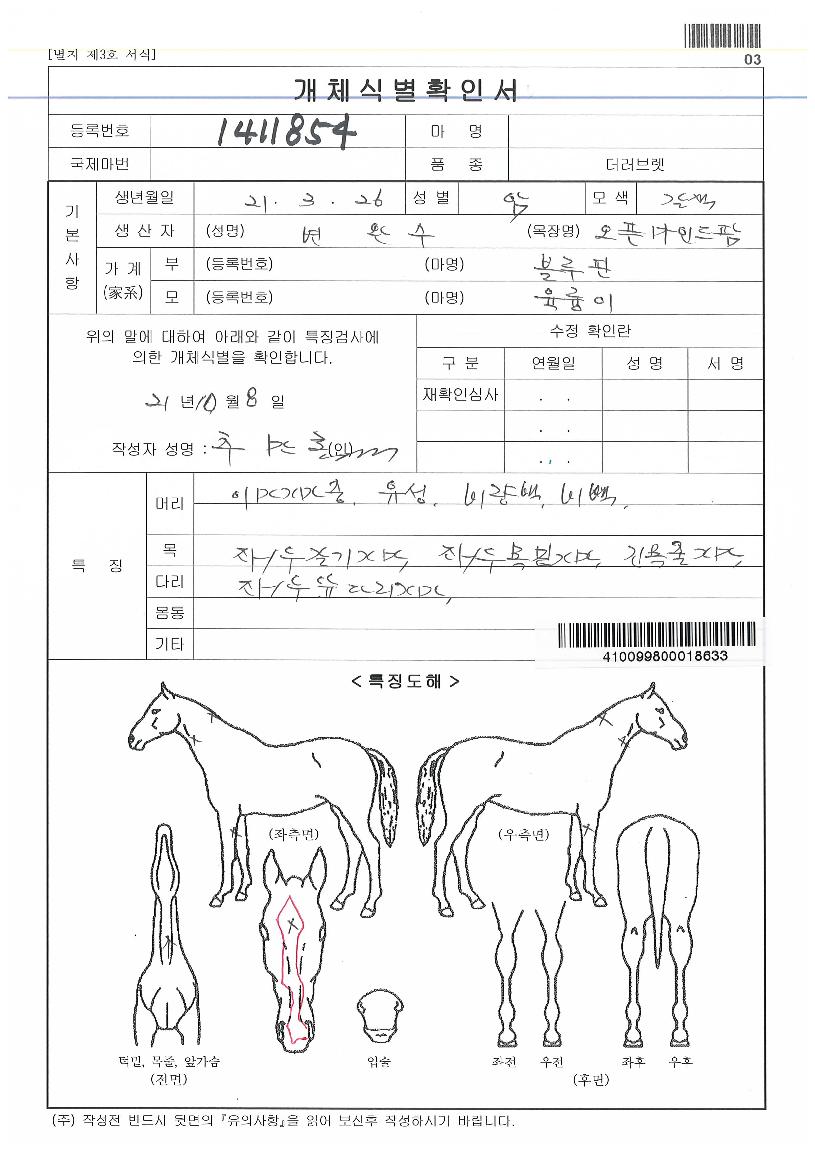 [별지 제3호 서식]
03
개체식별확인서
등록번호 1411854 마 명
국제마번 품 종 더러브렛
기본사항
생년월일 21. 3. 26 성 별 암 모 색 갈색
생 산 자 (성명) 변 완 수 (목장명) 오픈마인드팜
가 계 (家系) 부 (등록번호) (마명) 블루핀
모 (등록번호) (마명) 육룡이
위의 말에 대하여 아래와 같이 특징검사에
의한 개체식별을 확인합니다.
21 년 10 월 8 일
작성자 성명 : (인)
수정 확인란
구 분 연월일 성 명 서 명
재확인심사 . .
. .
. .
특 징
머리 유성, 비량백, 비백,
목
다리
몸통
기타
410099800018633
< 특징도해 >
(좌측면) (우측면)
턱밑, 목줄, 앞가슴
(전면)
입술
좌전 우전 좌후 우후
(후면)
(주) 작성전 반드시 뒷면의 『유의사항』을 읽어 보신후 작성하시기 바랍니다.